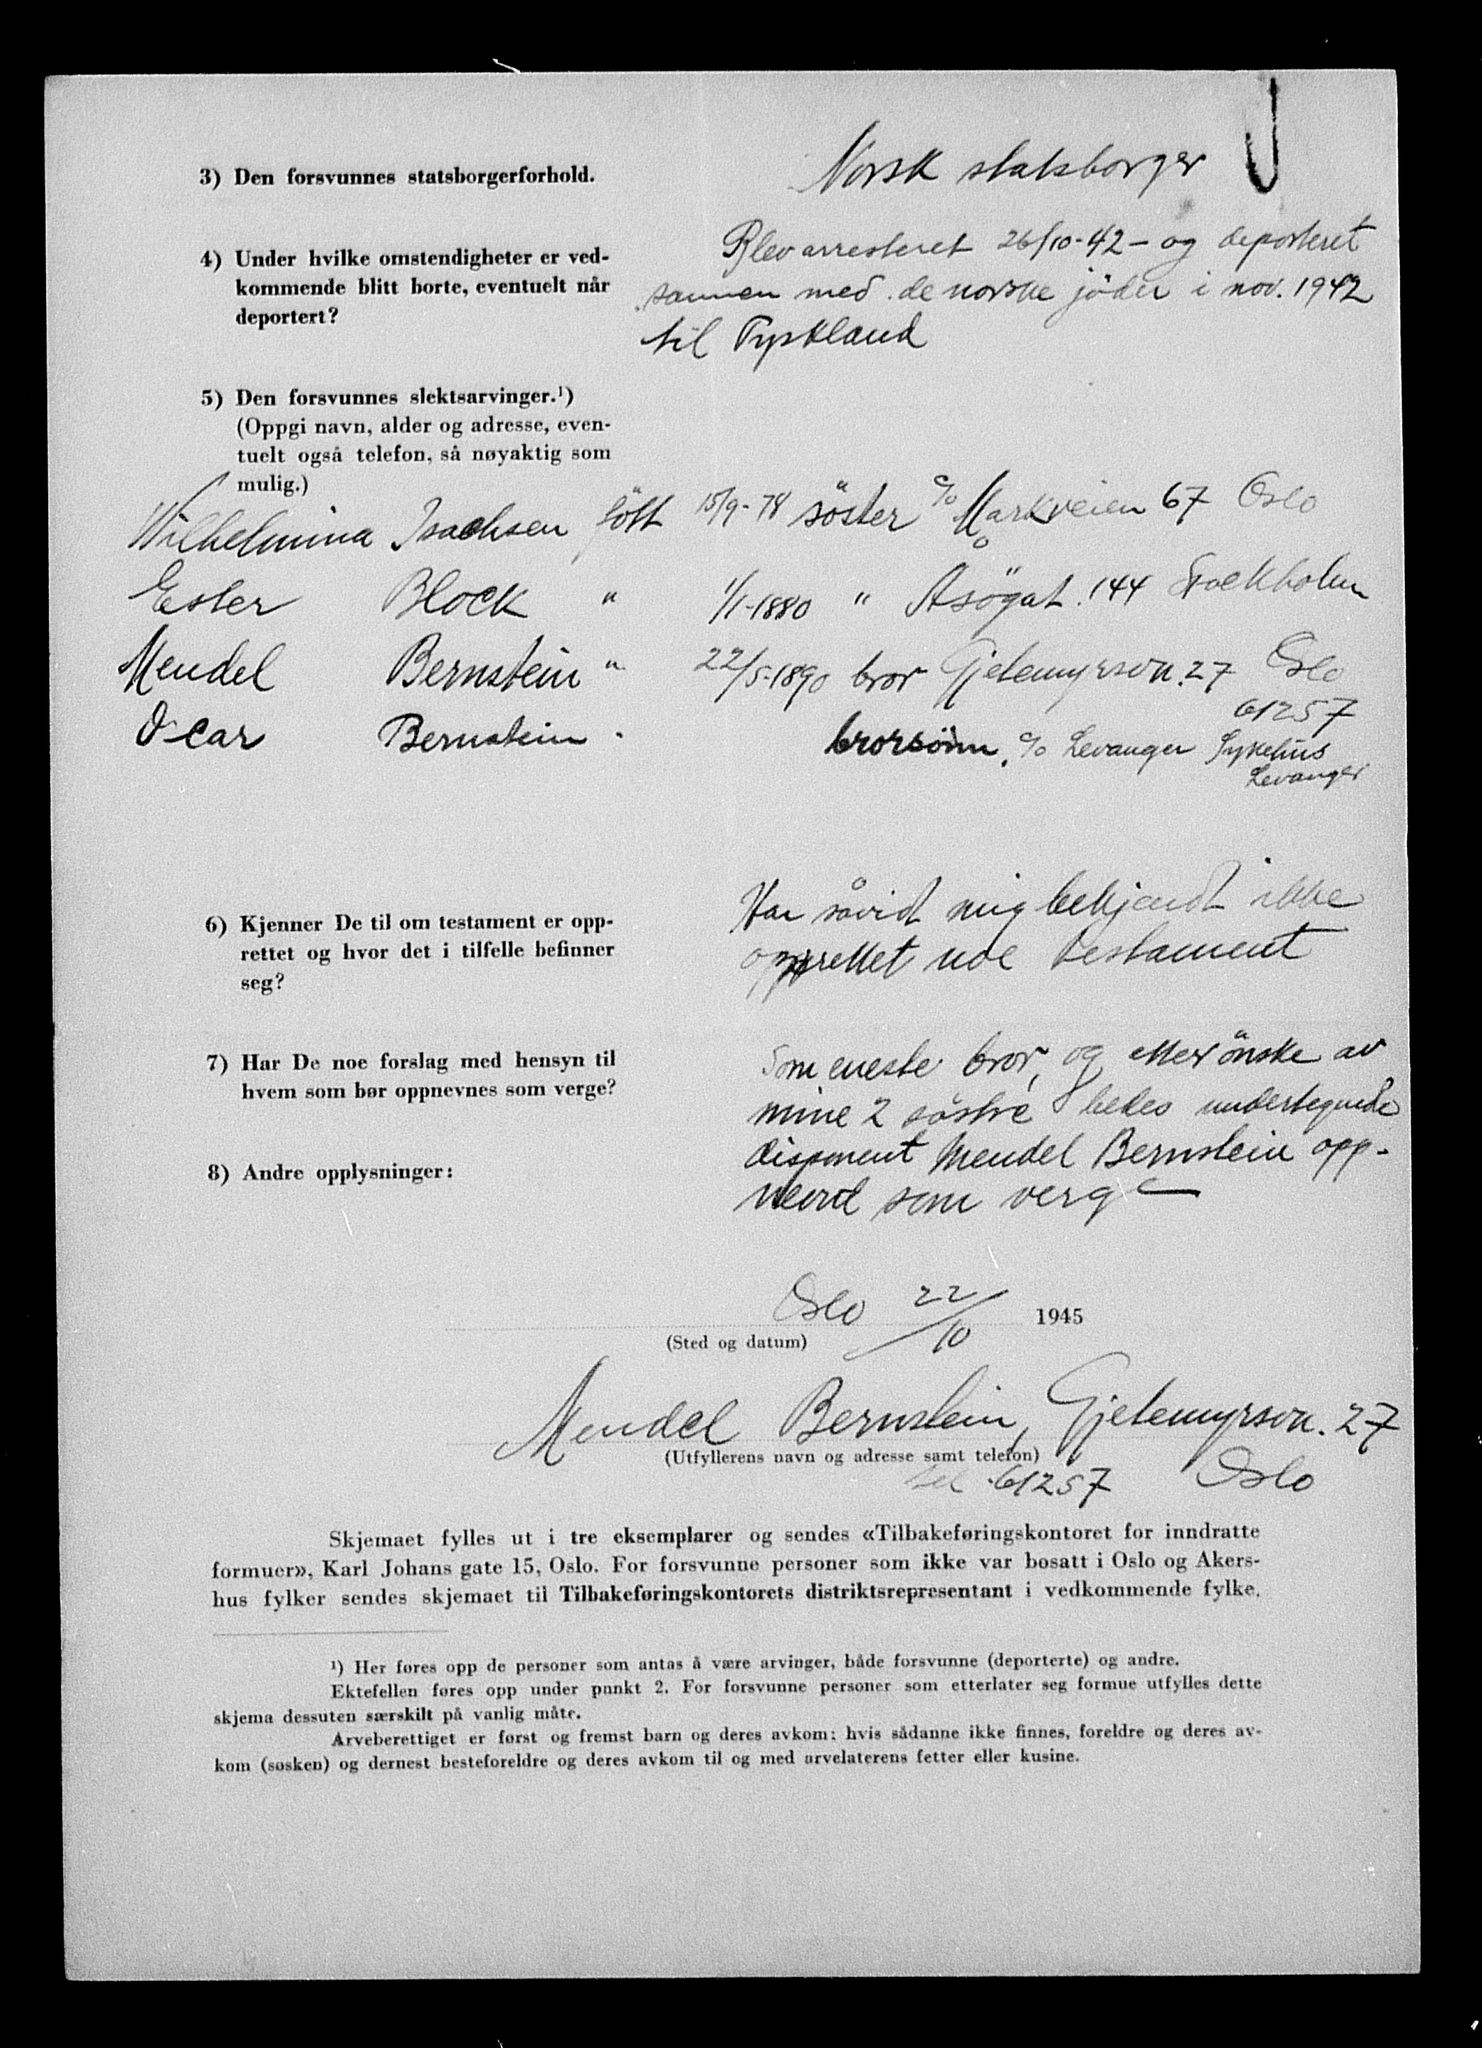 3) Den forsvunnes statsborgerforhold.
Norsk statsborger
4) Under hvilke omstendigheter er ved-
kommende blitt borte, eventuelt når
deportert?
Blev arresteret 26/10-42 - og deporteret
sammen med de norske jöder i nov. 1942
til Tyskland
5) Den forsvunnes slektsarvinger.¹)
(Oppgi navn, alder og adresse, even-
tuelt også telefon, så nøyaktig som
mulig.)
Wilhelmina Isachsen födt 15/9-78 söster c/o Markveien 67 Oslo
Ester Block " 1/1-1880 " Åsögat. 144 Stockholm
Mendel Bernstein " 22/5-1890 bror Gjetemyrsvn. 27 Oslo
61257
Oscar Bernstein . brorsönn. c/o Levanger Sykehus
Levanger
6) Kjenner De til om testament er opp-
rettet og hvor det i tilfelle befinner
seg?
Har såvidt mig bekjendt ikke
opprettet noe testament
7) Har De noe forslag med hensyn til
hvem som bør oppnevnes som verge?
8) Andre opplysninger:
Som eneste bror, og etter önske av
mine 2 söstre bedes undertegnede
disponent Mendel Bernstein opp-
nevnt som verge
Oslo 22/10 1945
(Sted og datum)
Mendel Bernstein, Gjetemyrsvn. 27
(Utfyllerens navn og adresse samt telefon)
tel. 61257 Oslo
Skjemaet fylles ut i tre eksemplarer og sendes «Tilbakeføringskontoret for inndratte
formuer», Karl Johans gate 15, Oslo. For forsvunne personer som ikke var bosatt i Oslo og Akers-
hus fylker sendes skjemaet til Tilbakeføringskontorets distriktsrepresentant i vedkommende fylke.
¹) Her føres opp de personer som antas å være arvinger, både forsvunne (deporterte) og andre.
Ektefellen føres opp under punkt 2. For forsvunne personer som etterlater seg formue utfylles dette
skjema dessuten særskilt på vanlig måte.
Arveberettiget er først og fremst barn og deres avkom; hvis sådanne ikke finnes, foreldre og deres av-
kom (søsken) og dernest besteforeldre og deres avkom til og med arvelaterens fetter eller kusine.